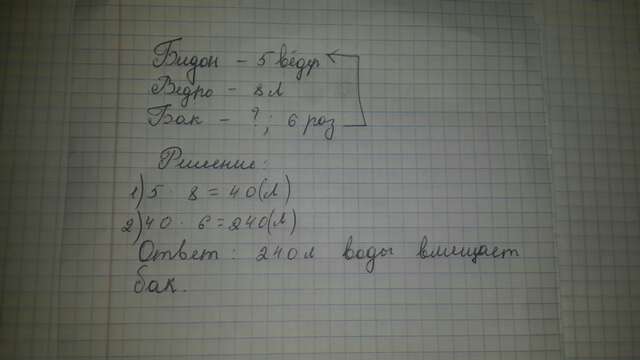 Бидон - 5 вёдер
Ведро - 8 л
Бак - ?; 6 раз
Решение:
1) 5 · 8 = 40 (л)
2) 40 · 6 = 240 (л)
Ответ: 240 л воды вмещает
бак.